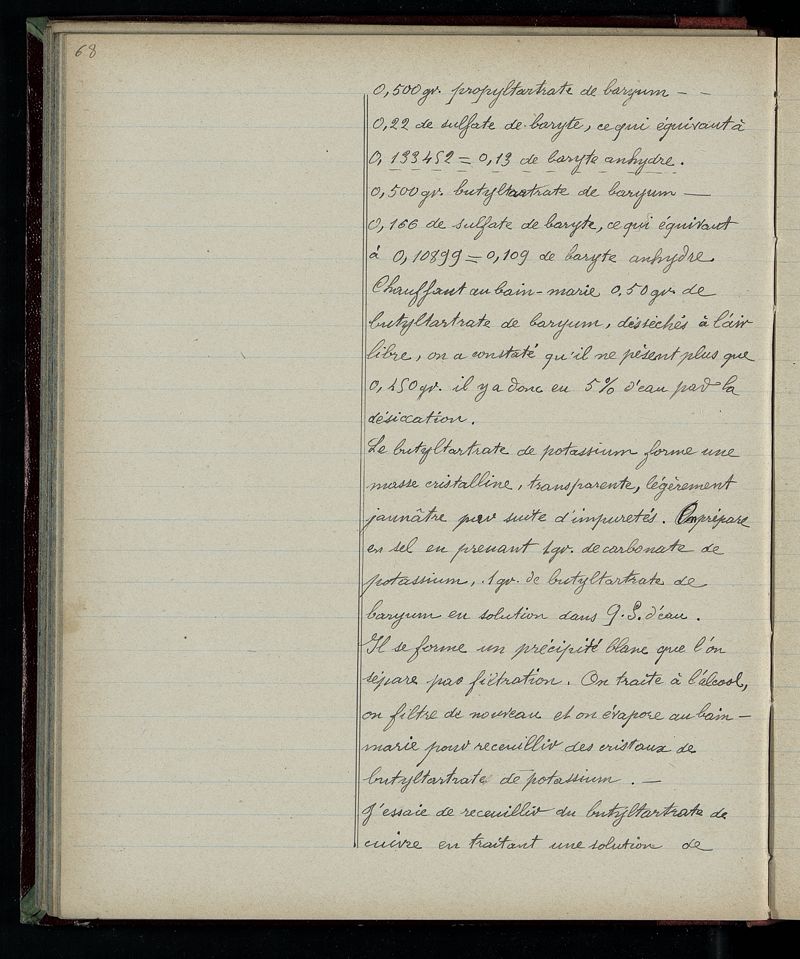 68
0,500 gr. propyltartrate de baryum – –
0,22 de sulfate de baryte, ce qui équivaut à
0,133452 = 0,13 de baryte anhydre.
0,500 gr. butyltartrate de baryum —
0,166 de sulfate de baryte, ce qui équivaut
à 0,10899 = 0,109 de baryte anhydre.
Chauffant au bain-marie 0,50 gr. de
butyltartrate de baryum, désséchés à l'air
libre, on a constaté qu'il ne pèsent plus que
0,450 gr. il y a donc eu 5% d'eau par la
désiccation.
Le butyltartrate de potassium forme une
masse cristalline, transparente, légèrement
jaunâtre par suite d'impuretés. On prépare
en sel en prenant 1 gr. de carbonate de
potassium, 1 gr. de butyltartrate de
baryum en solution dans Q.S. d'eau.
Il se forme un précipité blanc que l'on
sépare par filtration. On traite à l'alcool,
on filtre de nouveau et on évapore au bain-
marie pour receuillir des cristaux de
butyltartrate de potassium. —
J'essaie de receuillir du butyltartrate de
cuivre en traitant une solution de